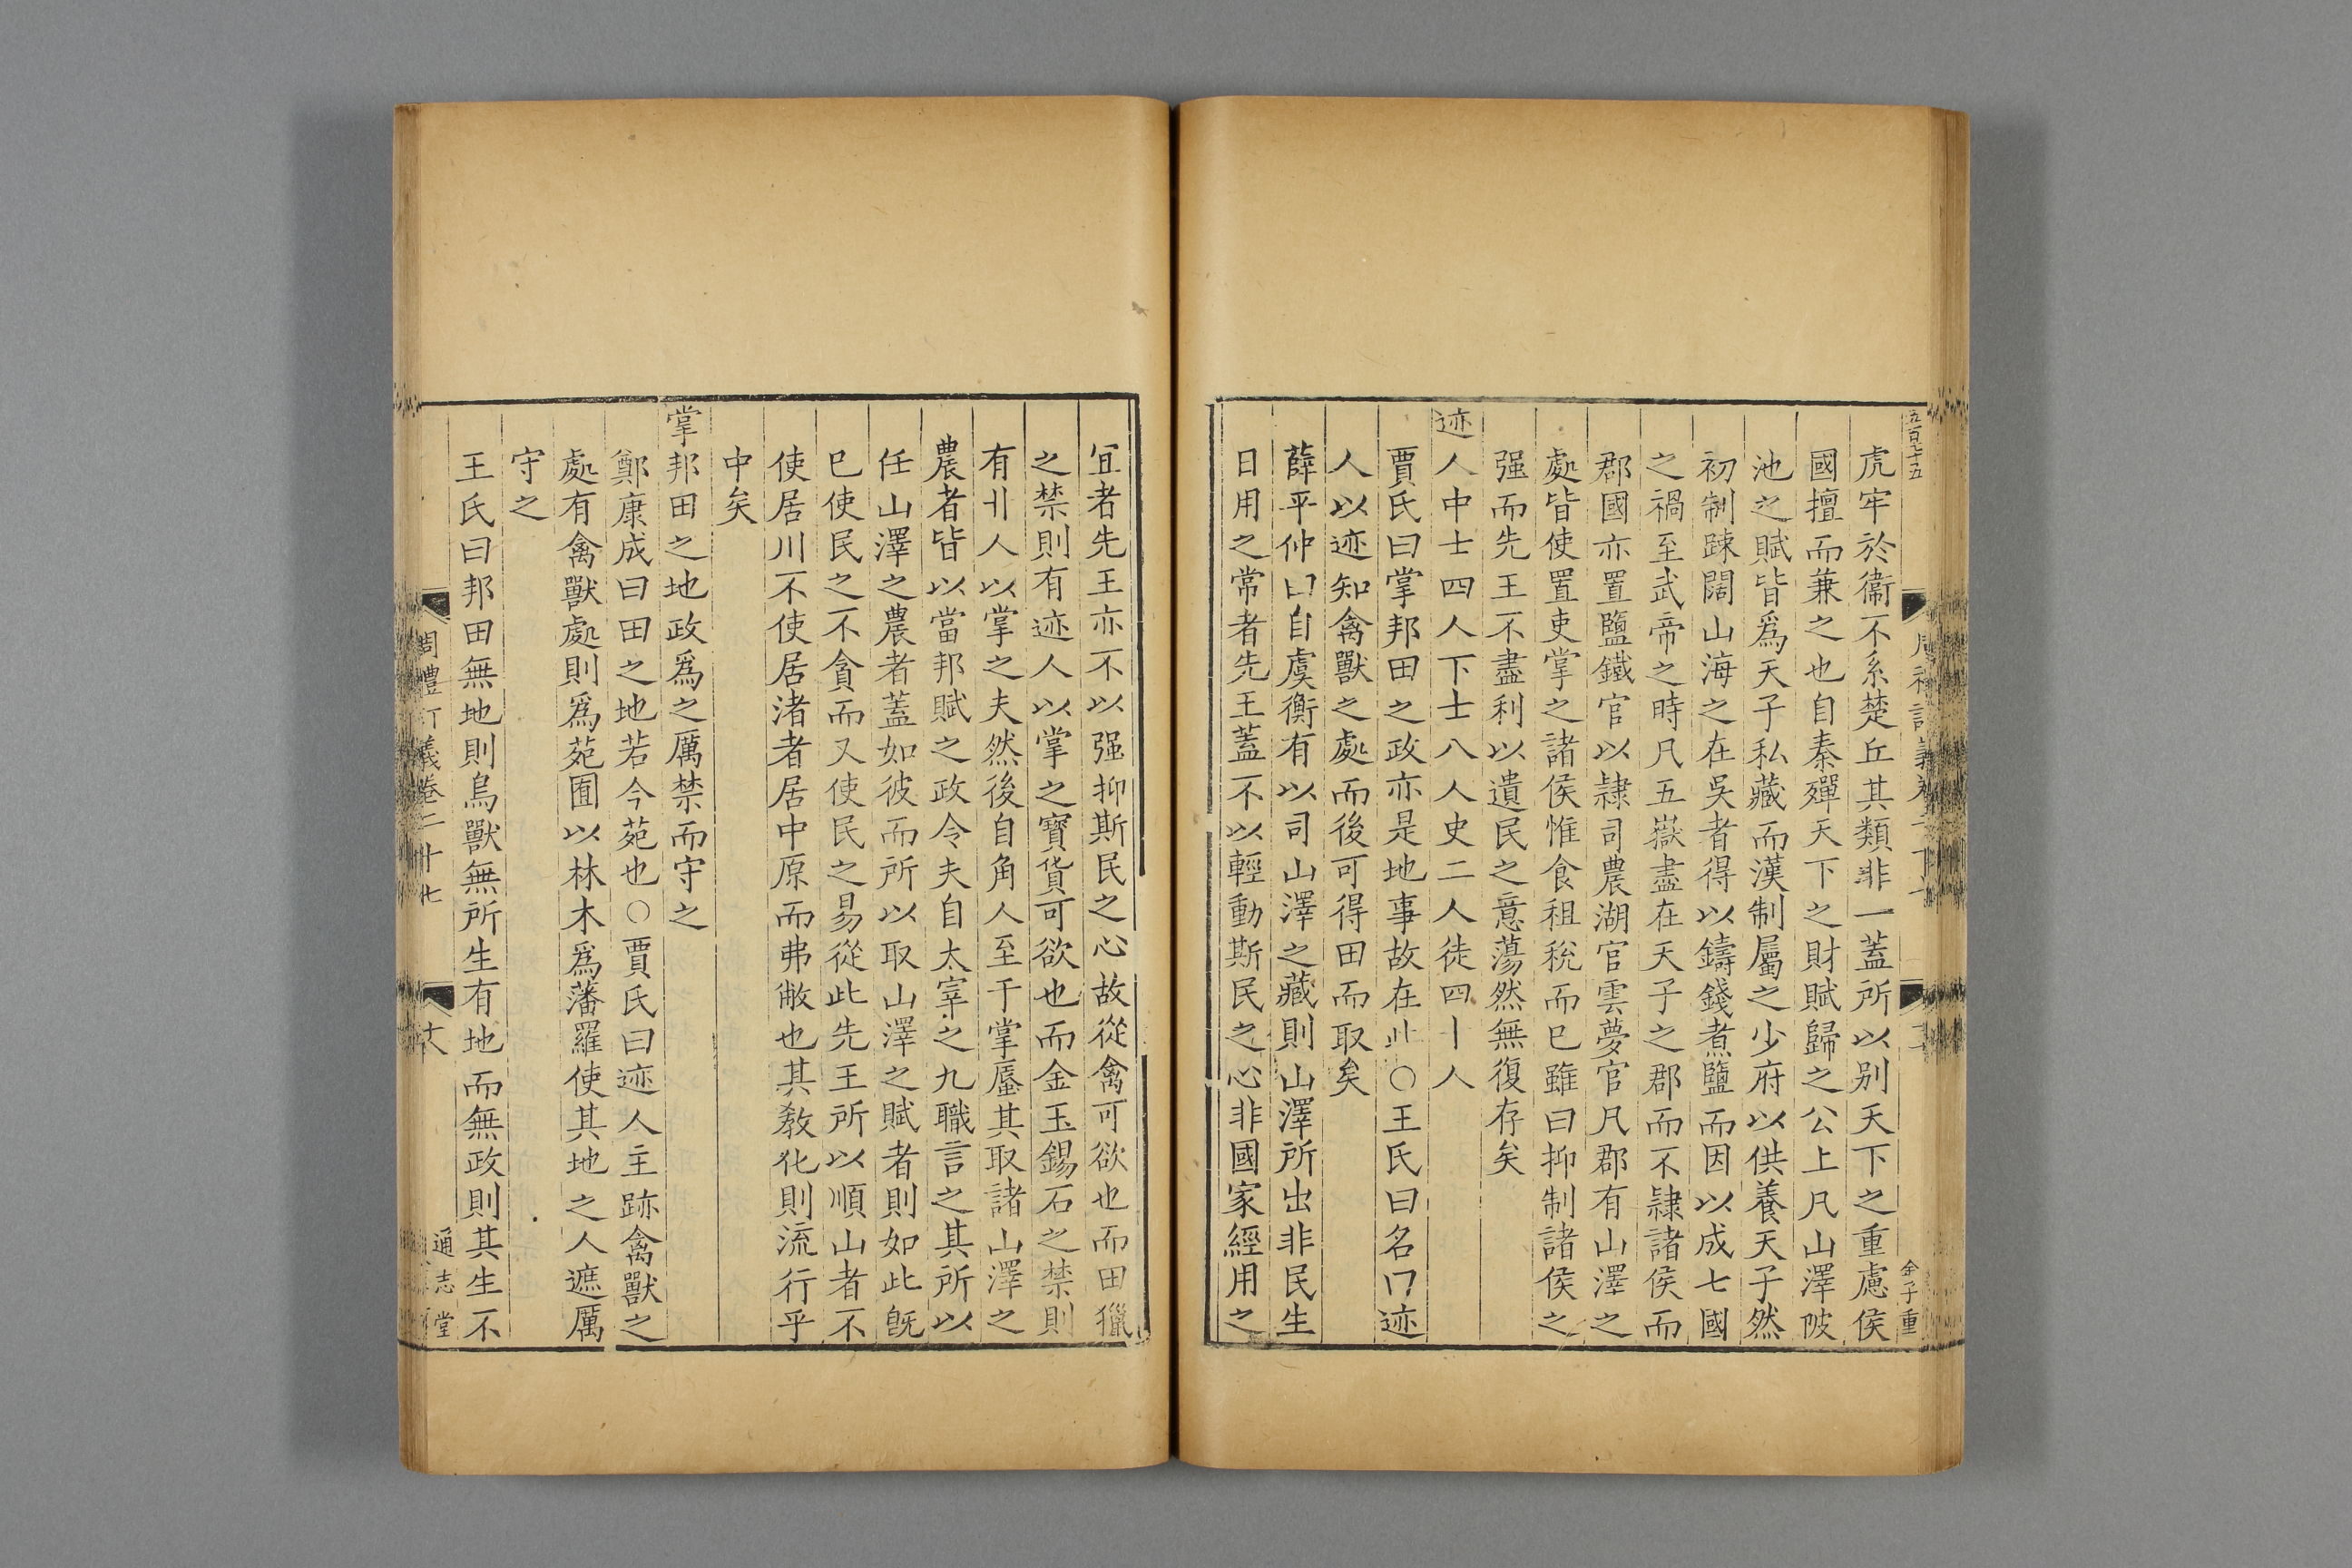 五百七十五
金子重
虎牢於衞不系楚丘其類非一蓋所以别天下之重慮侯
國擅而兼之也自秦殫天下之財賦歸之公上凡山澤陂
池之賦皆爲天子私藏而漢制屬之少府以供養天子然
初制踈闊山海之在吳者得以鑄錢煮鹽而因以成七國
之禍至武帝之時凡五嶽盡在天子之郡而不隷諸侯而
郡國亦置鹽鐵官以隷司農湖官雲夢官凡郡有山澤之
處皆使置吏掌之諸侯惟食租稅而已雖曰抑制諸侯之
强而先王不盡利以遺民之意蕩然無復存矣
迹人中士四人下士八人史二人徒四十人
賈氏曰掌邦田之政亦是地事故在此○王氏曰名曰迹
人以迹知禽獸之處而後可得田而取矣
薛平仲曰自虞衡有以司山澤之藏則山澤所出非民生
日用之常者先王蓋不以輕動斯民之心非國家經用之
宜者先王亦不以强抑斯民之心故從禽可欲也而田獵
之禁則有迹人以掌之寶貨可欲也而金玉錫石之禁則
有丱人以掌之夫然後自角人至于掌蜃其取諸山澤之
農者皆以當邦賦之政令夫自太宰之九職言之其所以
任山澤之農者蓋如彼而所以取山澤之賦者則如此旣
已使民之不貪而又使民之易從此先王所以順山者不
使居川不使居渚者居中原而弗敝也其敎化則流行乎
中矣
掌邦田之地政爲之厲禁而守之
鄭康成曰田之地若今苑也○賈氏曰迹人主跡禽獸之
處有禽獸處則爲苑囿以林木爲藩羅使其地之人遮厲
守之
王氏曰邦田無地則鳥獸無所生有地而無政則其生不
周禮訂義卷二十七
十八
通志堂